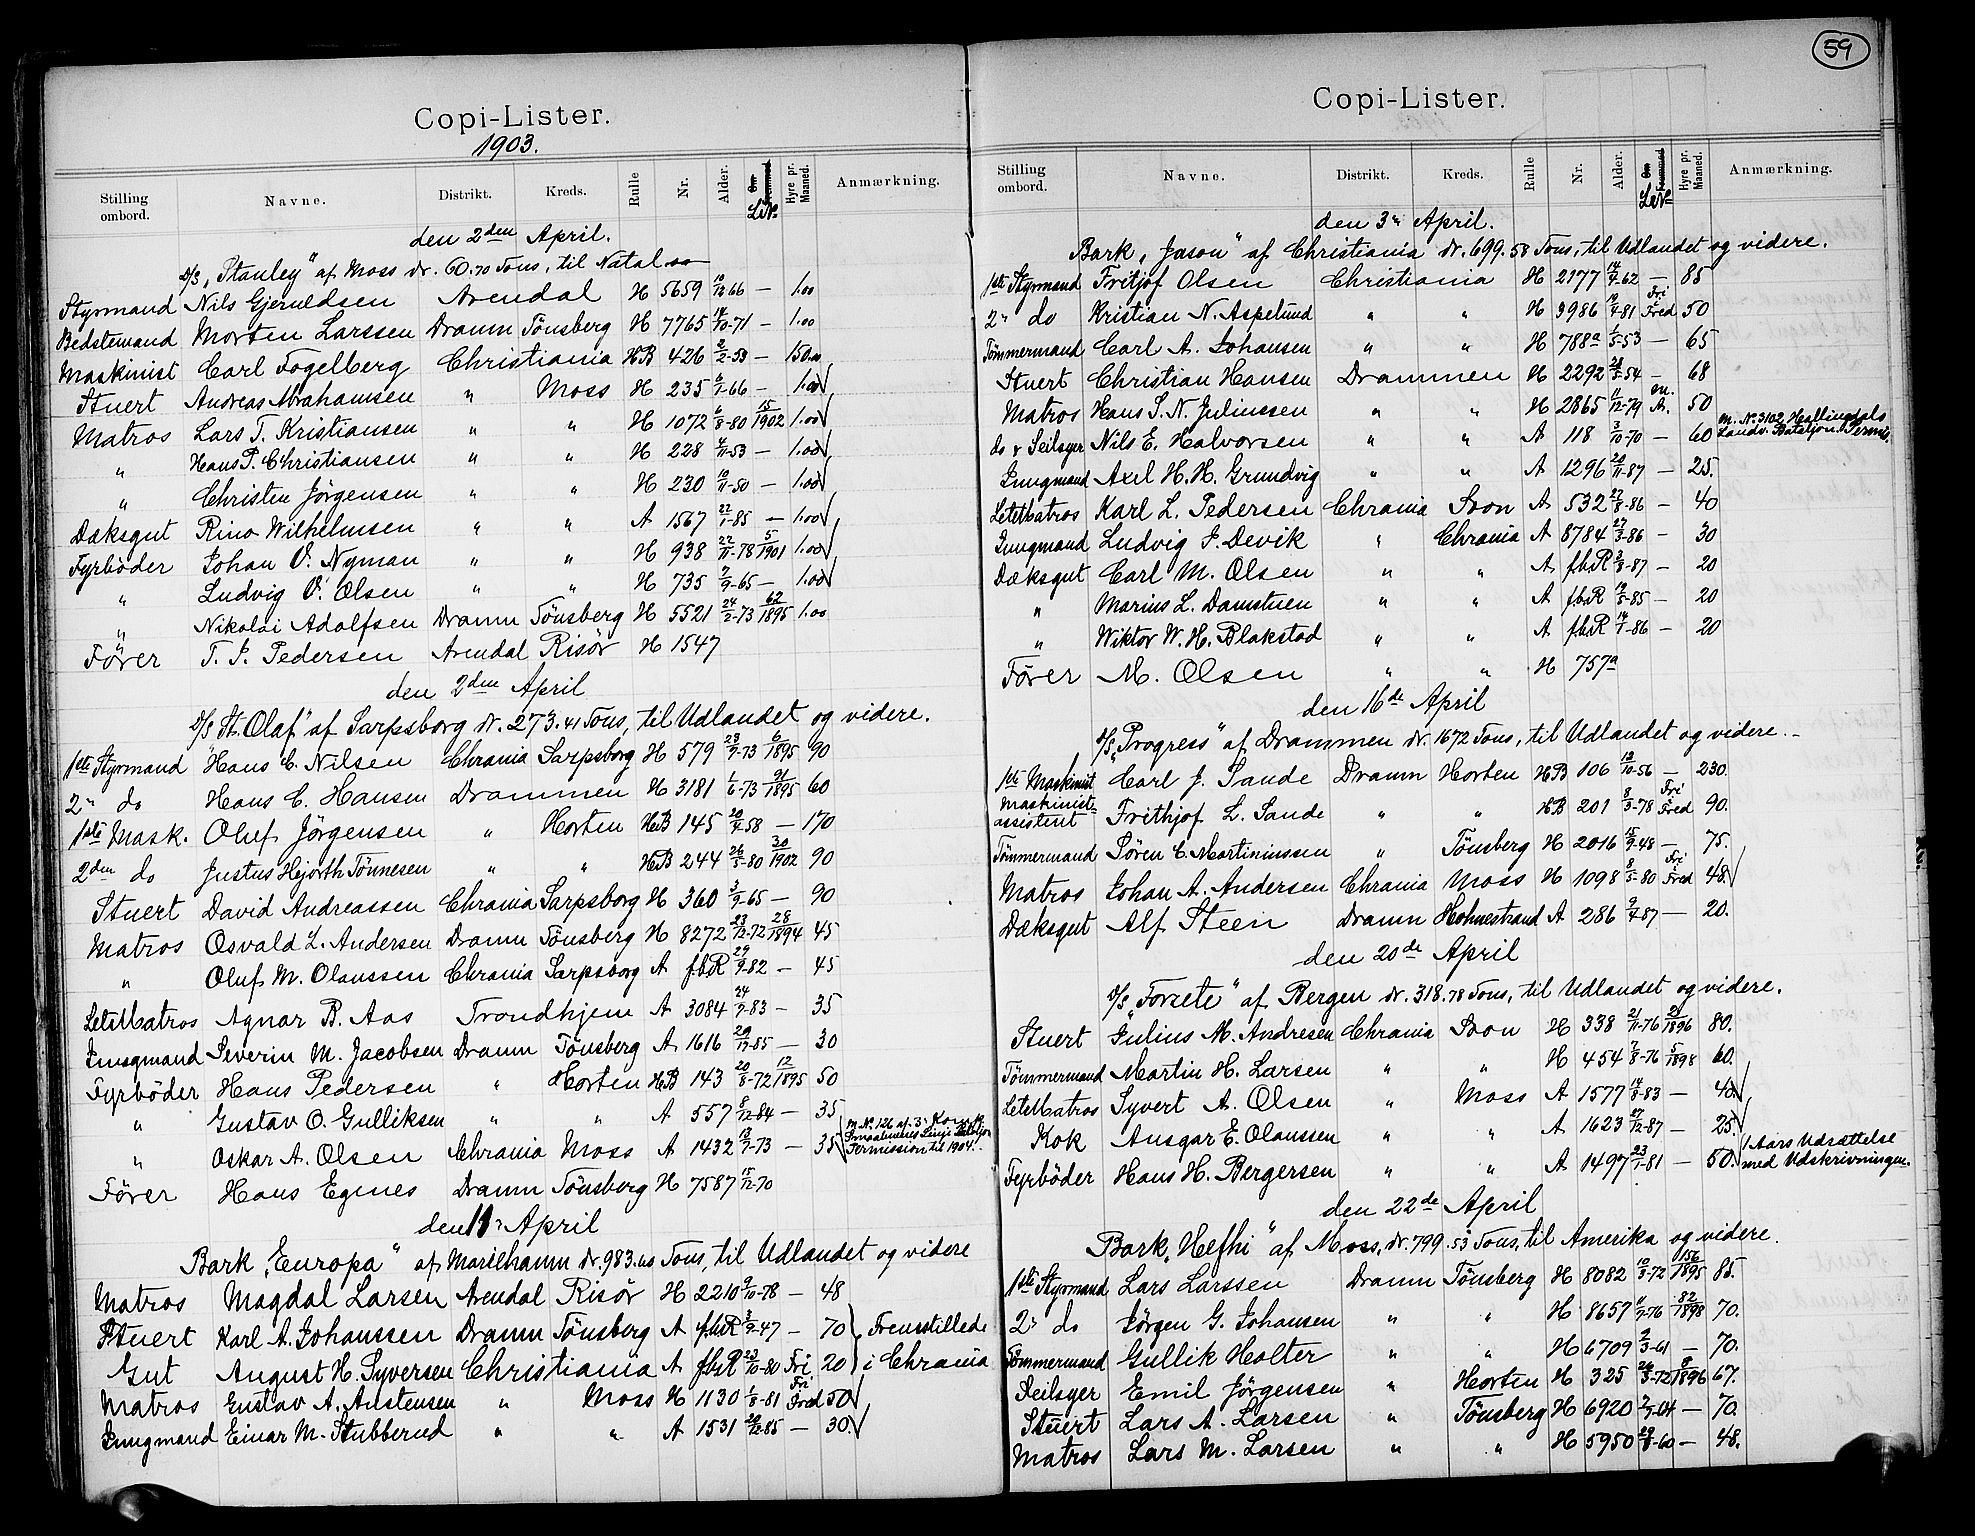 Copi-Lister.
1903.
Stilling ombord. Navne. Distrikt. Kreds. Rulle Nr. Alder. Hyre pr. Maaned. Anmærkning.
den 2den April.
D/S „Stanley“ af Moss dr. 60.70 Tons, til Natal
Styrmand Nils Gjeruldsen Arendal H 5659 10/12-66 — 1.00
Bedstemand Morten Larssen Dramn Tönsberg H 7765 14/10-71 — 1.00
Maskinist Carl Fogelberg Christiania HB 426 2/2-53 — 150.00
Stuert Andreas Abrahamsen " Moss H 235 6/1-66 — 1.00
Matros Lars T. Kristiansen " " H 1072 6/8-80 15/1902 1.00
" Hans P. Christiansen " " H 228 4/11-53 — 1.00
" Christen Jörgensen " " H 230 10/11-50 — 1.00
Dæksgut Rino Wilhelmsen " " A 1567 22/1-85 — 1.00
Fyrböder Johan O. Nyman " " H 938 22/11-78 5/1901 1.00
" Ludvig O. Olsen " " H 735 7/9-65 — 1.00
" Nikolai Adolfsen Dramn Tönsberg H 5521 24/2-73 62/1895 1.00
Förer T. J. Pedersen Arendal Risör H 1547
den 2den April
D/S „St. Olaf“ af Sarpsborg dr. 273.41 Tons, til Udlandet og videre.
1ste Styrmand Hans C. Nilsen Chrania Sarpsborg H 579 28/7-73 6/1895 90
2n do Hans C. Hansen Drammen H 3181 1/6-73 91/1895 60
1ste Mask. Oluf Jörgensen " Horten HB 145 20/4-58 — 170
2den do Justus Hejorth Tönnesen " " HB 244 26/5-80 30/1902 90
Stuert David Andreassen Chrania Sarpsborg H 360 3/9-65 — 90
Matros Osvald L. Andersen Dramn Tönsberg H 8272 23/12-72 28/1894 45
" Oluf M. Olaussen Chrania Sarpsborg A fbR 29/9-82 — 45
LetMatros Agnar B. Aas Trondhjem A 3084 24/7-83 — 35
Jungmand Severin M. Jacobsen Dramn Tönsberg A 1616 20/12-85 — 30
Fyrböder Hans Pedersen " Horten HB 143 20/8-72 12/1895 50
" Gustav O. Gulliksen " " A 557 8/12-84 — 35
" Oskar A. Olsen Chrania Moss A 1432 13/7-73 — 35 m. No. 126 af 3. Komp. Smaalenenes Linje Batljon Permission til 1904.
Förer Hans Egenes Dramn Tönsberg H 7587 15/12-70
den 11n April
Bark „Europa“ af Mariehamn dr. 983.40 Tons, til Udlandet og videre
Matros Magdal Larsen Arendal Risör H 2210 9/10-78 — 48
Stuert Karl A. Johanssen Dramn Tönsberg A fbR 3/9-47 — 70 Fremstillede
Gut August H. Syversen Christiania A fbR 23/10-80 Fri 20 i Chrania
Matros Gustav A. Anstensen " Moss H 1130 1/8-81 Fri Fred 50
Jungmand Einar M. Stubberud " " A 1531 20/12-85 — 30.
59
Copi-Lister.
Stilling ombord. Navne. Distrikt. Kreds. Rulle Nr. Alder. Hyre pr. Maaned. Anmærkning.
den 3n April.
Bark „Jason“ af Christiania dr. 699.58 Tons, til Udlandet og videre.
1ste Styrmand Fritjof Olsen Christiania H 2177 14/4-62 — 85
2n do Kristian N. Aspelund " " H 3986 10/4-81 Fri Fred 50
Tömmermand Carl A. Johansen " " H 788a 1/5-53 — 65
Stuert Christian Hansen Drammen H 2292 28/5-54 — 68
Matros Hans S. N. Juliussen " " H 2865 11/12-79 m. A. 50
do & Seilsyer Nils E. Halvorsen " " A 118 3/10-70 — 60 m. No. 3102 Hallingdals Landv. Bataljon. Permis.
Jungmand Axel H. H. Grundvig " " A 1296 20/11-87 — 25.
LetMatros Karl L. Pedersen Chrania Soon A 532 27/8-86 — 40
Jungmand Ludvig J. Devik " Chrania A 8784 27/3-86 — 30
Dæksgut Carl M. Olsen " " A fbR 3/8-87 — 20
" Marius L. Damstuen " " A fbR 19/5-85 — 20
" Wiktor W. H. Blakstad " " A fbR 14/1-86 — 20
Förer M. Olsen " " H 757a
den 16de April
D/S „Progress“ af Drammen dr. 1672 Tons, til Udlandet og videre.
1ste Maskinist Carl J. Sande Dramn Horten HB 106 13/10-56 — 230.
Maskinist-assistent Frithjof L. Sande " " HB 201 8/3-78 Fri Fred 90.
Tömmermand Sören C. Martiniussen " Tönsberg H 2016 15/9-48 — 75.
Matros Johan A. Andersen Chrania Moss H 1098 8/5-80 Fri Fred 48.
Dæksgut Alf Steen Dramn Holmestrand A 286 9/4-87 — 20.
den 20de April
D/S „Forsete“ af Bergen dr. 318.78 Tons, til Udlandet og videre.
Stuert Julius M. Andresen Chrania Soon H 338 21/11-76 24/1896 80.
Tömmermand Martin H. Larsen " " H 454 7/8-76 5/1898 60.
LetMatros Syvert A. Olsen " Moss A 1577 14/8-83 — 40.
Kok Ansgar E. Olaussen " " A 1623 27/12-87 — 25.
Fyrböder Hans H. Bergersen " " A 1497 23/1-81 — 50. 1 Aars Udsættelse med Udskrivningen.
den 22de April
Bark „Hefhi“ af Moss, dr. 799.53 Tons, til Amerika og videre.
1ste Styrmand Lars Larssen Dramn Tönsberg H 8082 10/3-72 156/1895 85.
2n do Jörgen G. Johansen " " H 8657 11/7-76 82/1898 70.
Tömmermand Gullik Holter " " H 6709 2/3-61 — 70.
Seilsyer Emil Jörgensen " Horten H 325 24/3-72 8/1896 67.
Stuert Lars A. Larsen " Tönsberg H 6920 7/7-64 — 70.
Matros Lars M. Larsen " " H 5950 29/8-60 — 48.